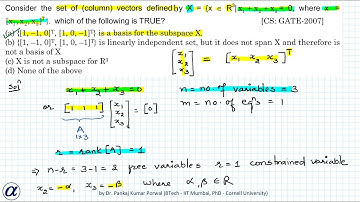 Consider the set of (column) vectors defined by X = {x ∈ R³| x₁+x₂+x₃ = 0, where xᵀ =
[x₁, x₂, x₃]ᵀ}. which of the following is TRUE? [CS: GATE-2007]
(a) {[1, −1, 0]ᵀ, [1, 0, −1]ᵀ} is a basis for the subspace X.
(b) {[1, −1, 0]ᵀ, [1, 0, −1]ᵀ} is linearly independent set, but it does not span X and therefore is
not a basis of X
(c) X is not a subspace for R³
(d) None of the above
[x₁ x₂ x₃] = [x₁ x₂ x₃]ᵀ
Solⁿ
x₁ + x₂ + x₃ = 0
n = no. of variables = 3
or [1 1 1] [x₁ x₂ x₃] = [0]
m = no. of eqⁿs = 1
A
1×3
r = rank[A] = 1
⇒ n-r = 3-1 = 2 free variables r = 1 constrained variable
x₂ = -α, x₃ = -β where α, β ∈ R
by Dr. Pankaj Kumar Porwal (BTech - IIT Mumbai, PhD - Cornell University)